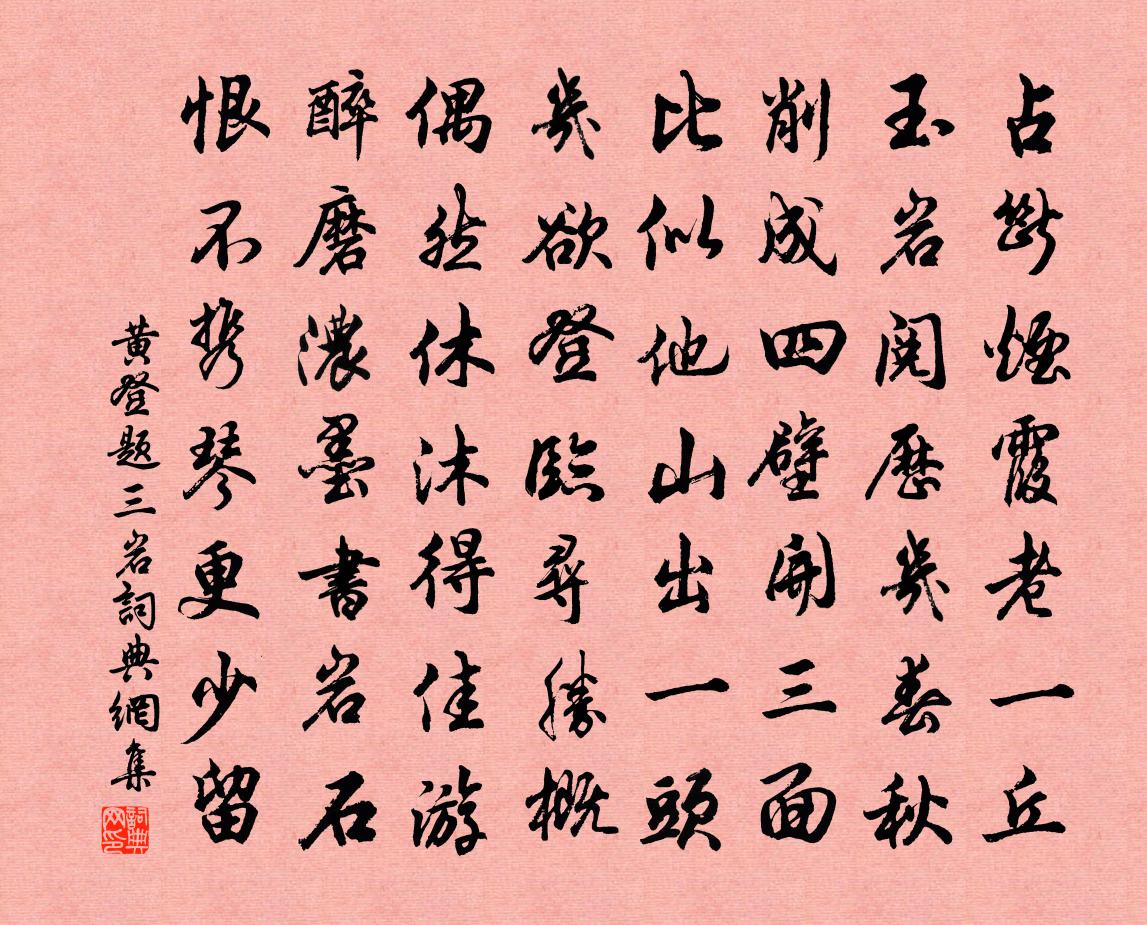 占断煙霞老一丘
玉岩閱歷幾春秋
削成四壁開三面
比似他山出一頭
幾欲登臨尋勝概
偶然休沐得佳游
醉磨濃墨書岩石
恨不携琴更少留
黄登題三岩詞典網集
詞典网印